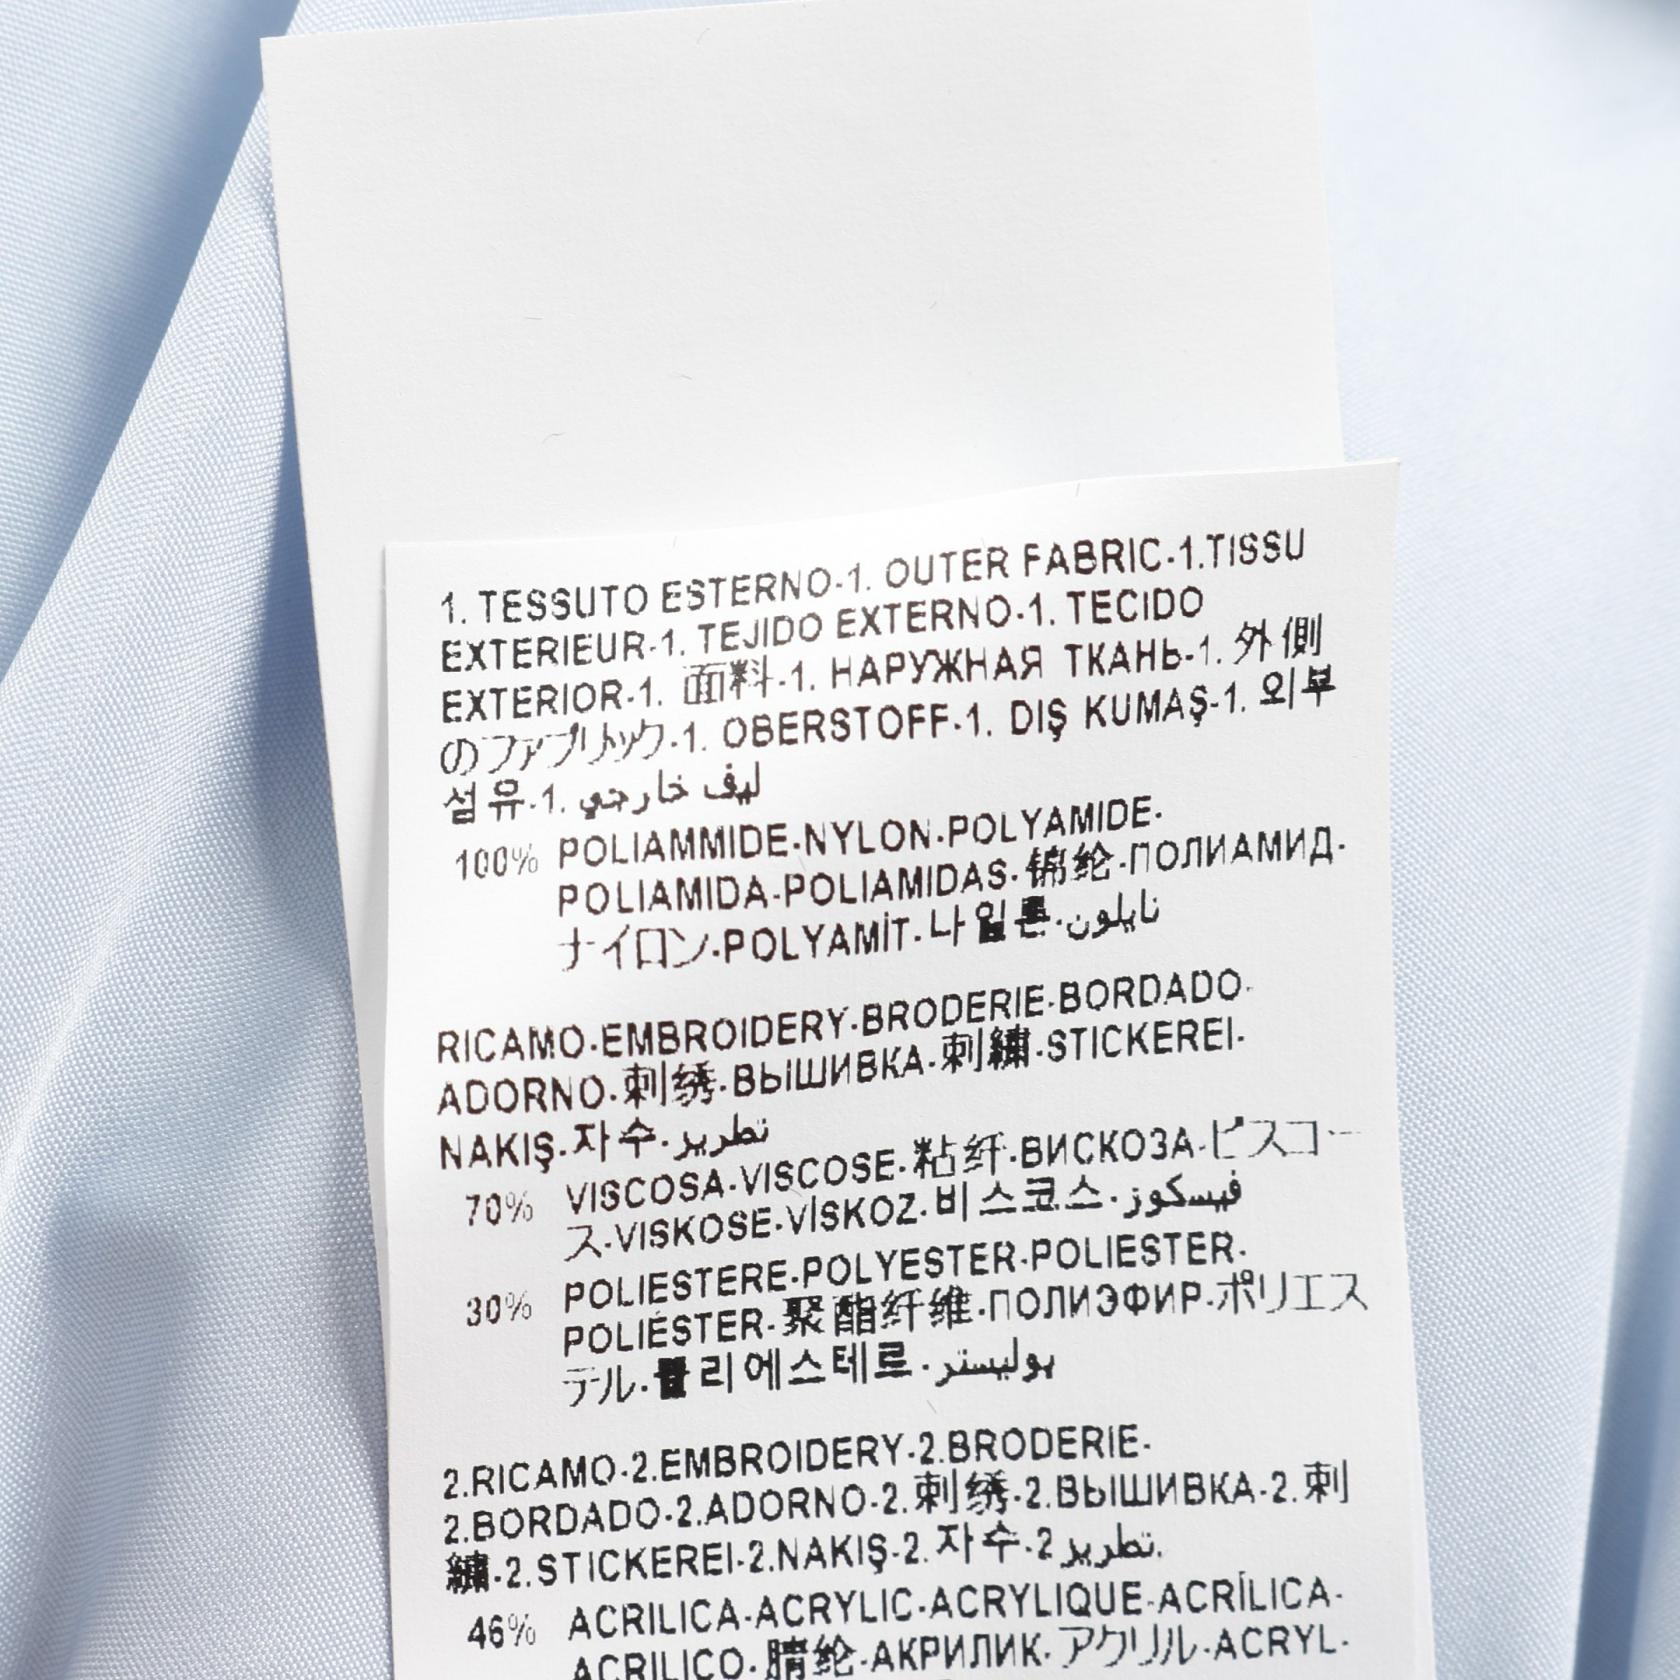 1. TESSUTO ESTERNO-1. OUTER FABRIC-1.TISSU
EXTERIEUR-1. TEJIDO EXTERNO-1. TECIDO
EXTERIOR-1. 面料-1. НАРУЖНАЯ ТКАНЬ-1. 外側
のファブリック-1. OBERSTOFF-1. DIŞ KUMAŞ-1. 외부
섬유-1. ليف خارجي
100% POLIAMMIDE-NYLON-POLYAMIDE-
POLIAMIDA-POLIAMIDAS-锦纶-ПОЛИАМИД-
ナイロン-POLYAMİT-나일론-نايلون
RICAMO-EMBROIDERY-BRODERIE-BORDADO-
ADORNO-刺绣-ВЫШИВКА-刺繍-STICKEREI-
NAKIŞ-자수-تطريز
70% VISCOSA-VISCOSE-粘纤-ВИСКОЗА-ビスコー
ス-VISKOSE-VİSKOZ-비스코스-فيسكوز
30% POLIESTERE-POLYESTER-POLIESTER-
POLIÉSTER-聚酯纤维-ПОЛИЭФИР-ポリエス
テル-폴리에스테르-بوليستر
2.RICAMO-2.EMBROIDERY-2.BRODERIE-
2.BORDADO-2.ADORNO-2.刺绣-2.ВЫШИВКА-2.刺
繍-2.STICKEREI-2.NAKIŞ-2.자수-2.تطريز
46% ACRILICA-ACRYLIC-ACRYLIQUE-ACRÍLICA-
ACRILICO-腈纶-АКРИЛИК-アクリル-ACRYL-